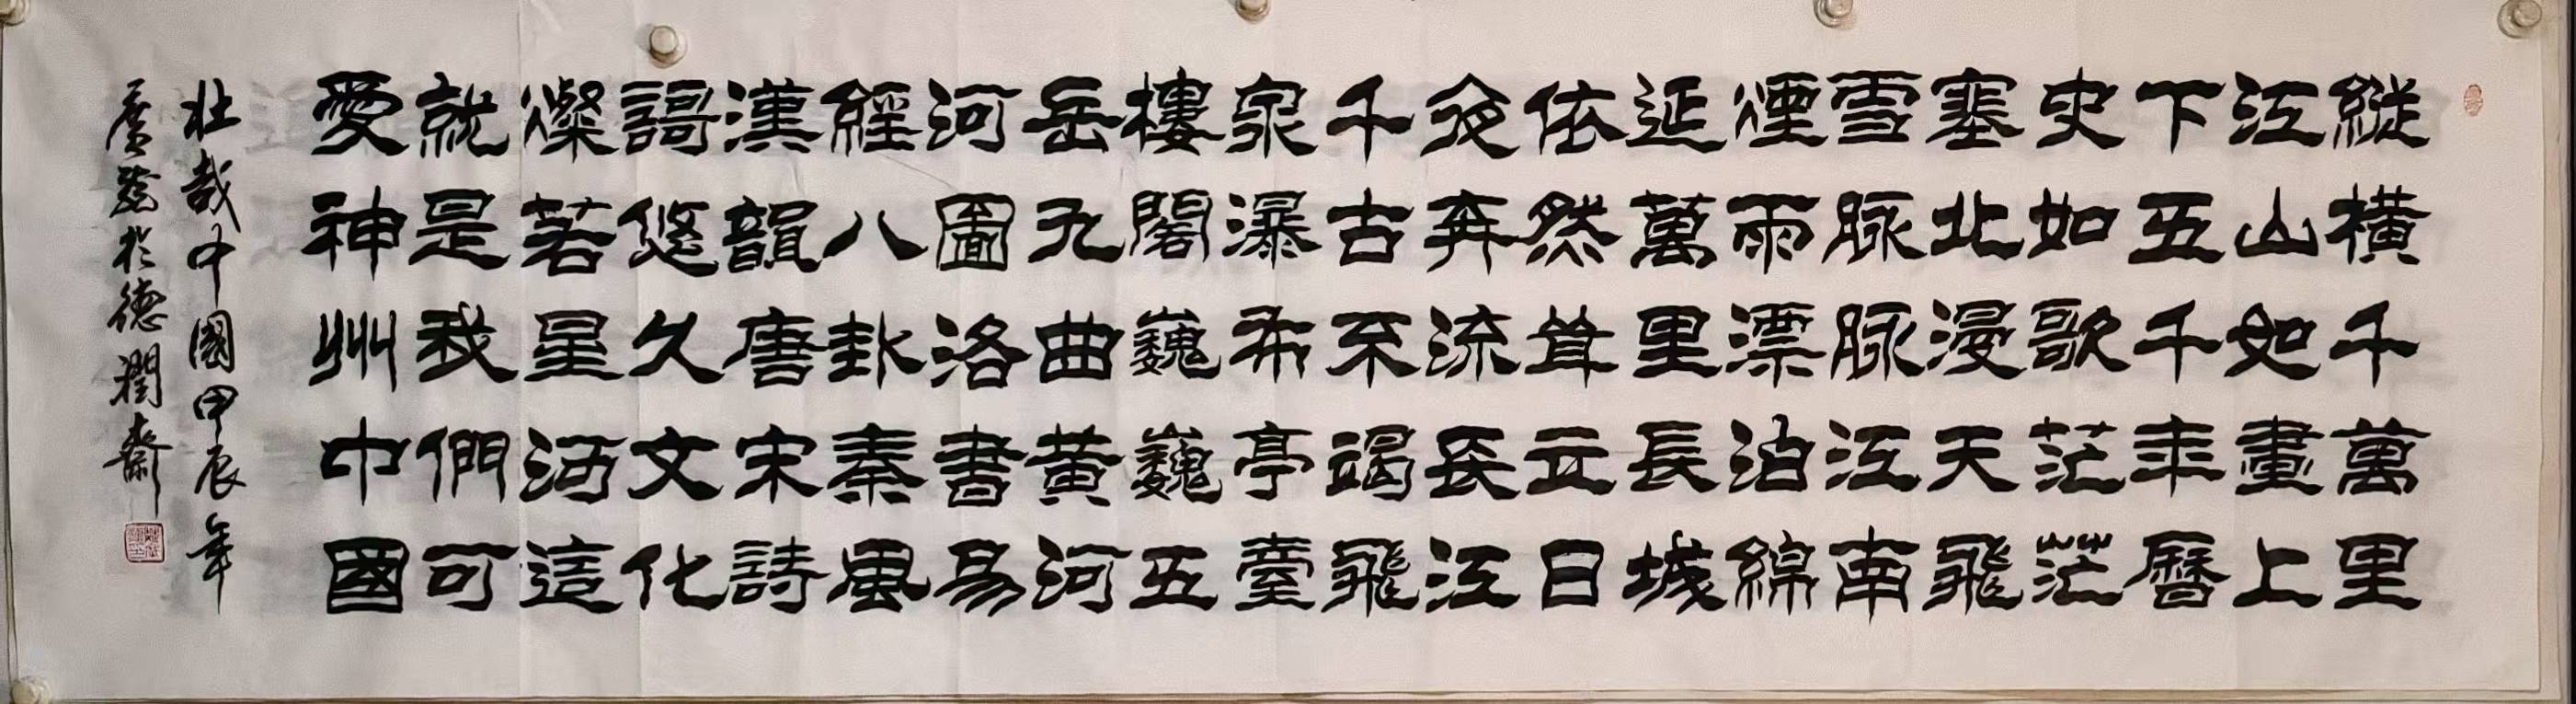 縱橫千萬里
江山如畫上
下五千年曆
史如歌茫茫
塞北漫天飛
雪脉脉江南
煙雨漂泊綿
延萬里長城
依然聳立日
夜奔流長江
千古不竭飛
泉瀑布亭臺
樓閣巍巍五
岳九曲黄河
河圖洛書易
經八卦秦風
漢韻唐宋詩
謌悠久文化
燦若星河這
就是我們可
愛神州中國
壯哉中國甲辰年
於德潤齋